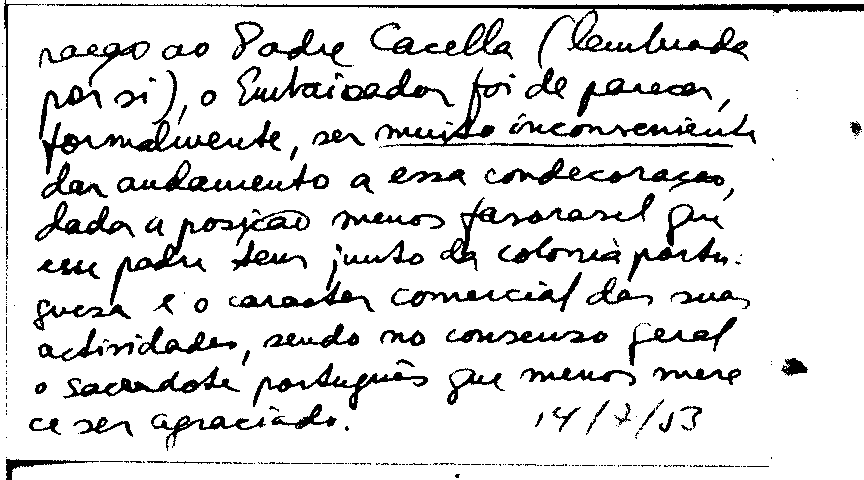 ração ao Padre Cacella (lembrada
por si), o Embaixador foi de parecer,
formalmente, ser muito inconveniente
dar andamento a essa condecoração,
dada a posição menos favoravel que
esse padre tem junto da colonia portu-
guesa e o caracter comercial das suas
actividades, sendo no consenso geral
o sacerdote português que menos mere
ce ser agraciado. 14/7/53